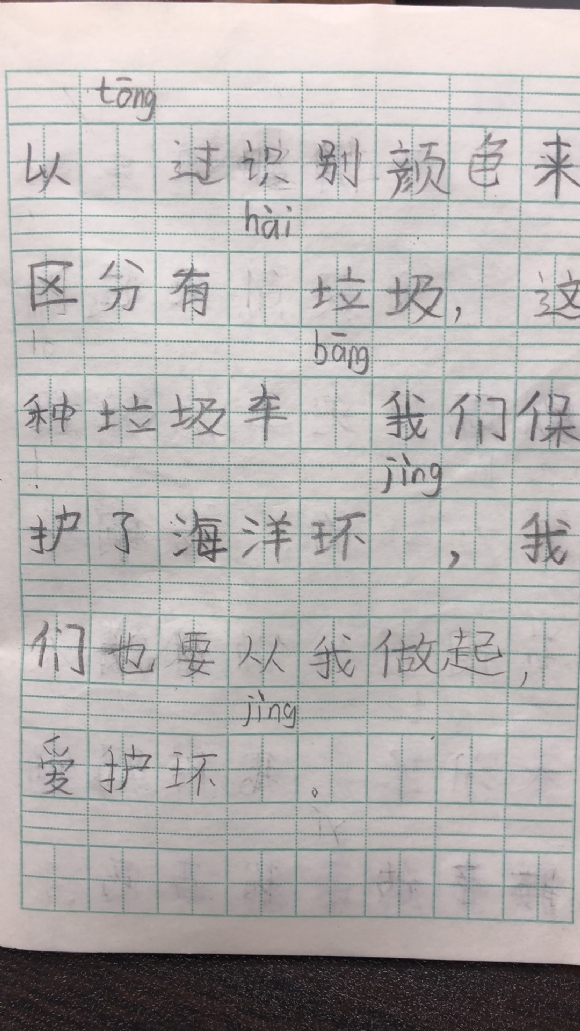 tōng
以 过识别颜色来
hài
区分有 垃圾，这
bāng
种垃圾车 我们保
jìng
护了海洋环 ，我
们也要从我做起，
jìng
爱护环 。